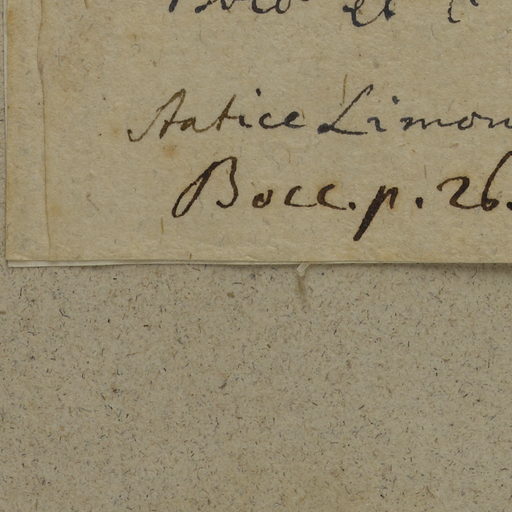 et
Statice Limon
Bocc. p. 26.